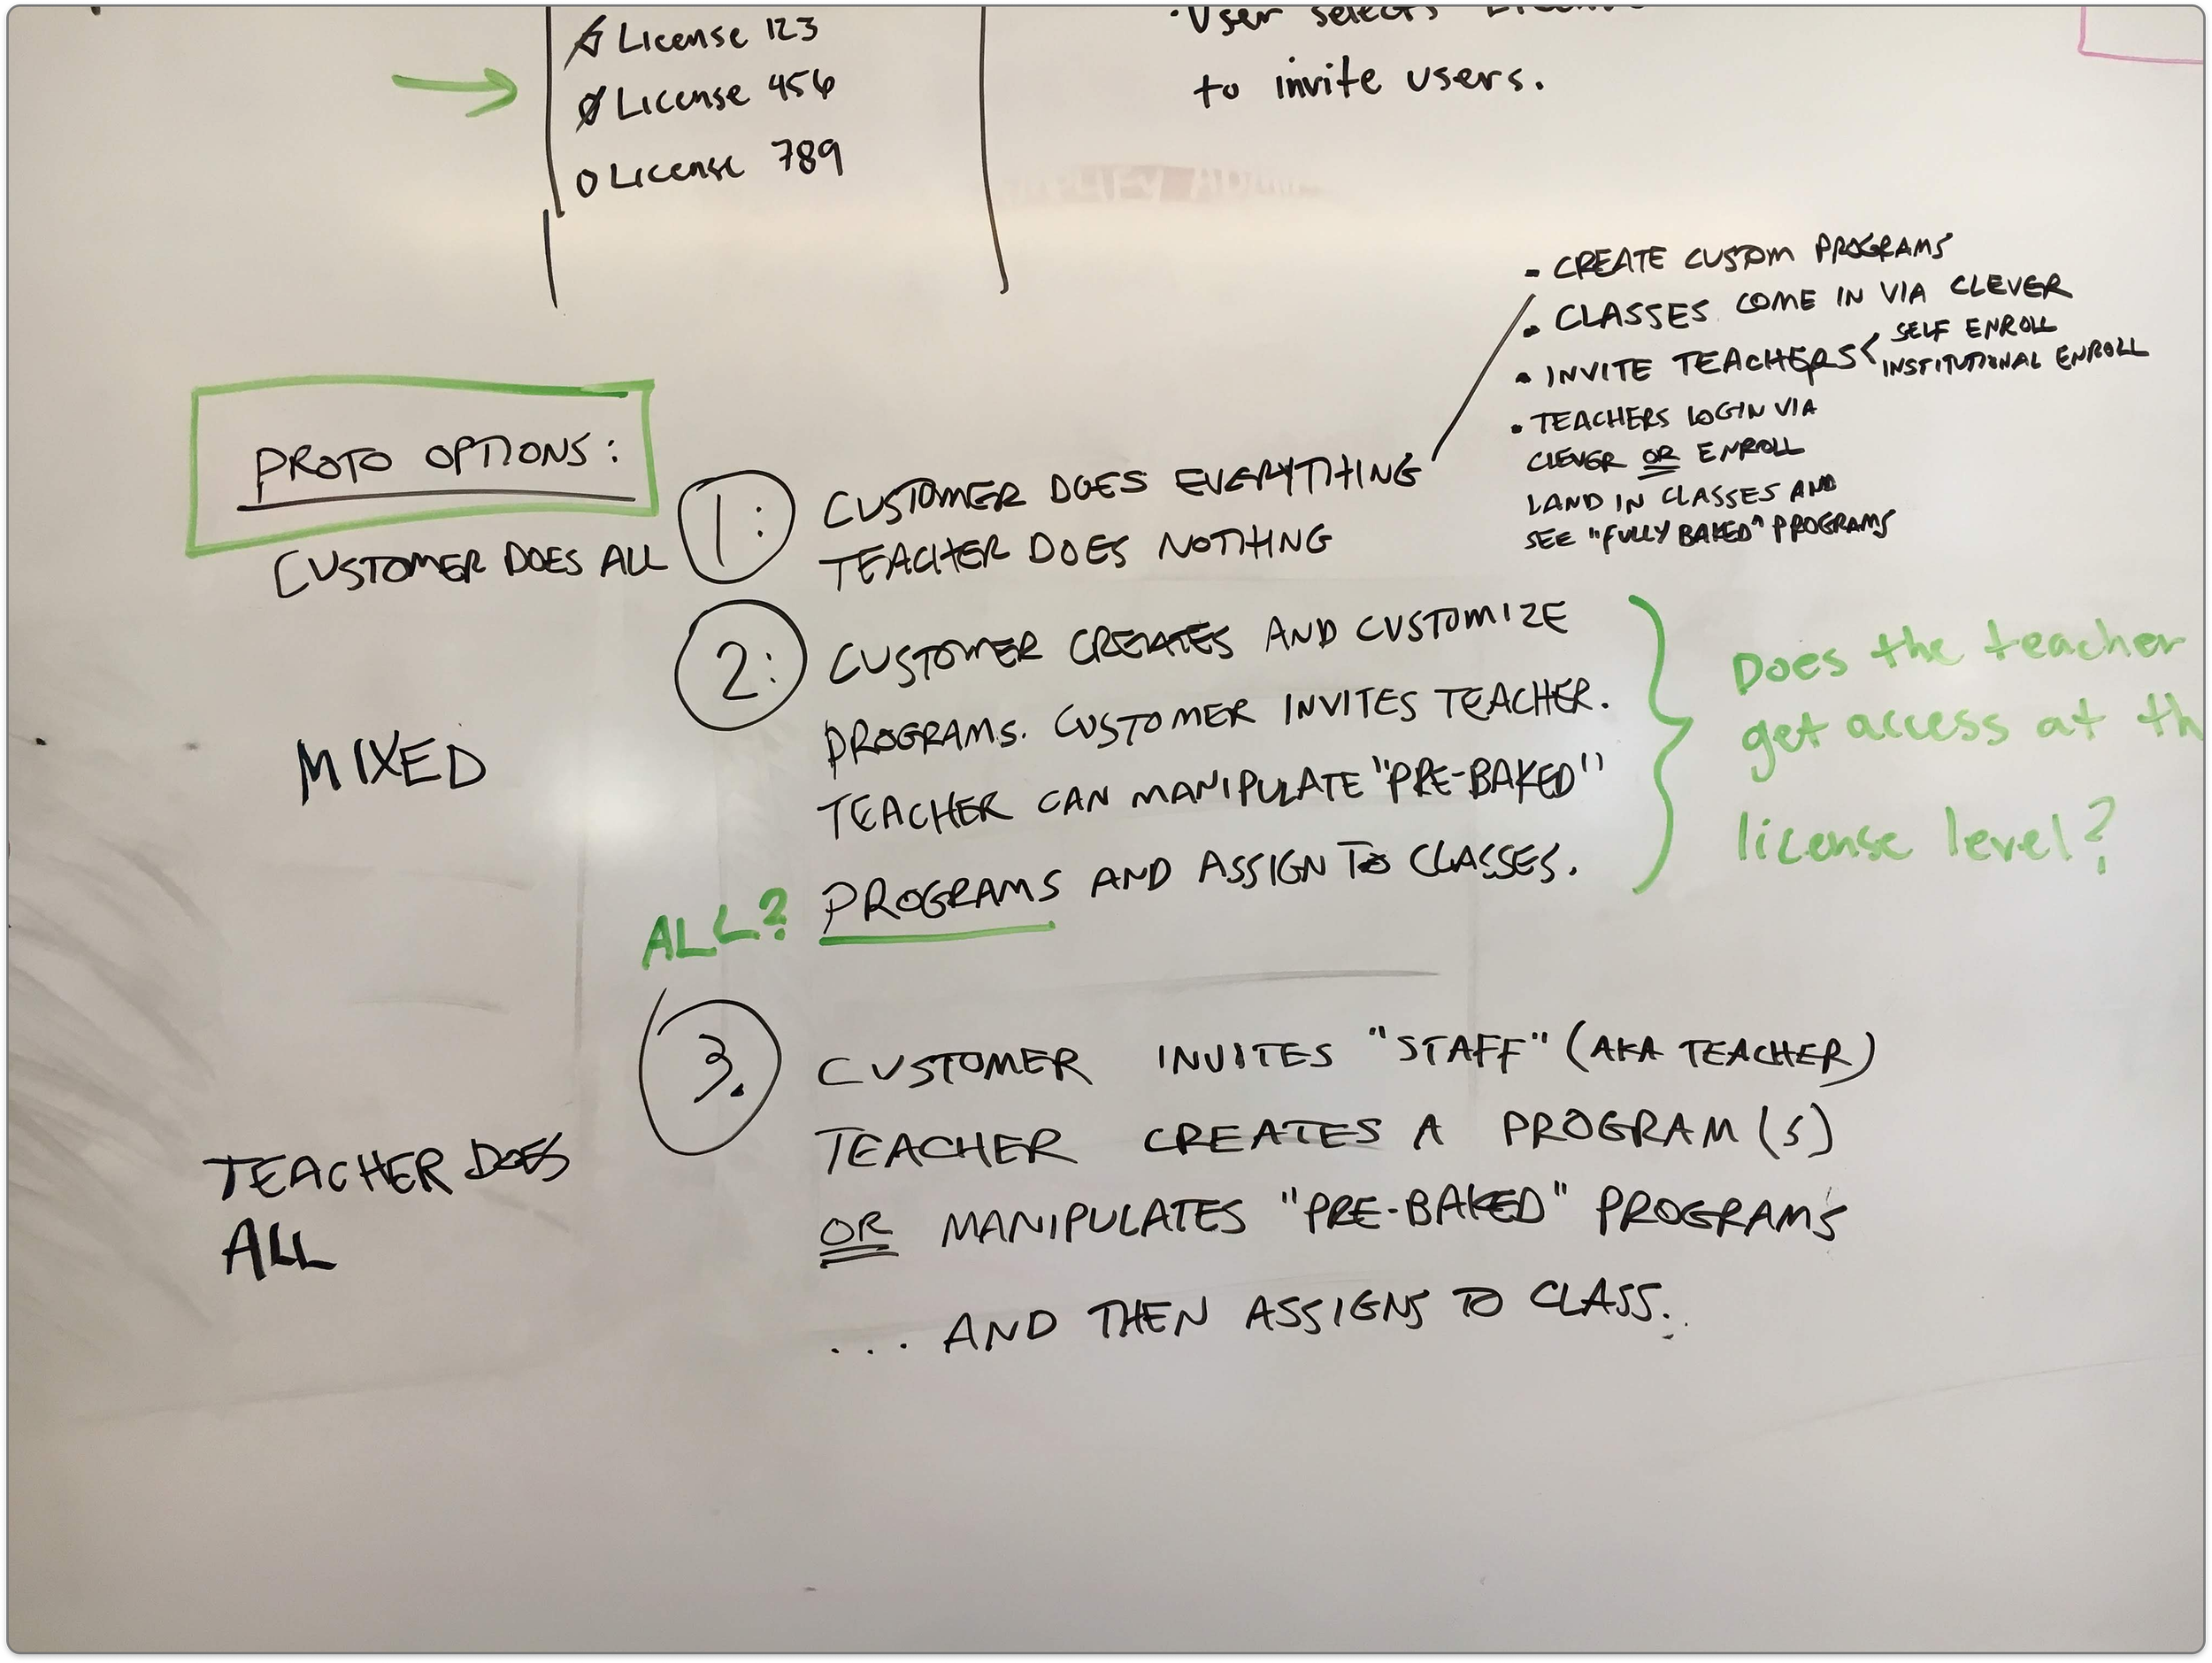 License 123
License 456
License 789
· User selects
to invite users.
- CREATE CUSTOM PROGRAMS
• CLASSES COME IN VIA CLEVER
• INVITE TEACHERS < SELF ENROLL
INSTITUTIONAL ENROLL
• TEACHERS LOGIN VIA
CLEVER OR ENROLL
LAND IN CLASSES AND
SEE "FULLY BAKED" PROGRAMS
PROTO OPTIONS:
CUSTOMER DOES ALL
1: CUSTOMER DOES EVERYTHING
TEACHER DOES NOTHING
MIXED
2: CUSTOMER CREATES AND CUSTOMIZE
PROGRAMS. CUSTOMER INVITES TEACHER.
TEACHER CAN MANIPULATE "PRE-BAKED"
ALL? PROGRAMS AND ASSIGN TO CLASSES.
Does the teacher
get access at th
license level?
TEACHER DOES
ALL
3. CUSTOMER INVITES "STAFF" (AKA TEACHER)
TEACHER CREATES A PROGRAM(S)
OR MANIPULATES "PRE-BAKED" PROGRAMS
... AND THEN ASSIGNS TO CLASS.